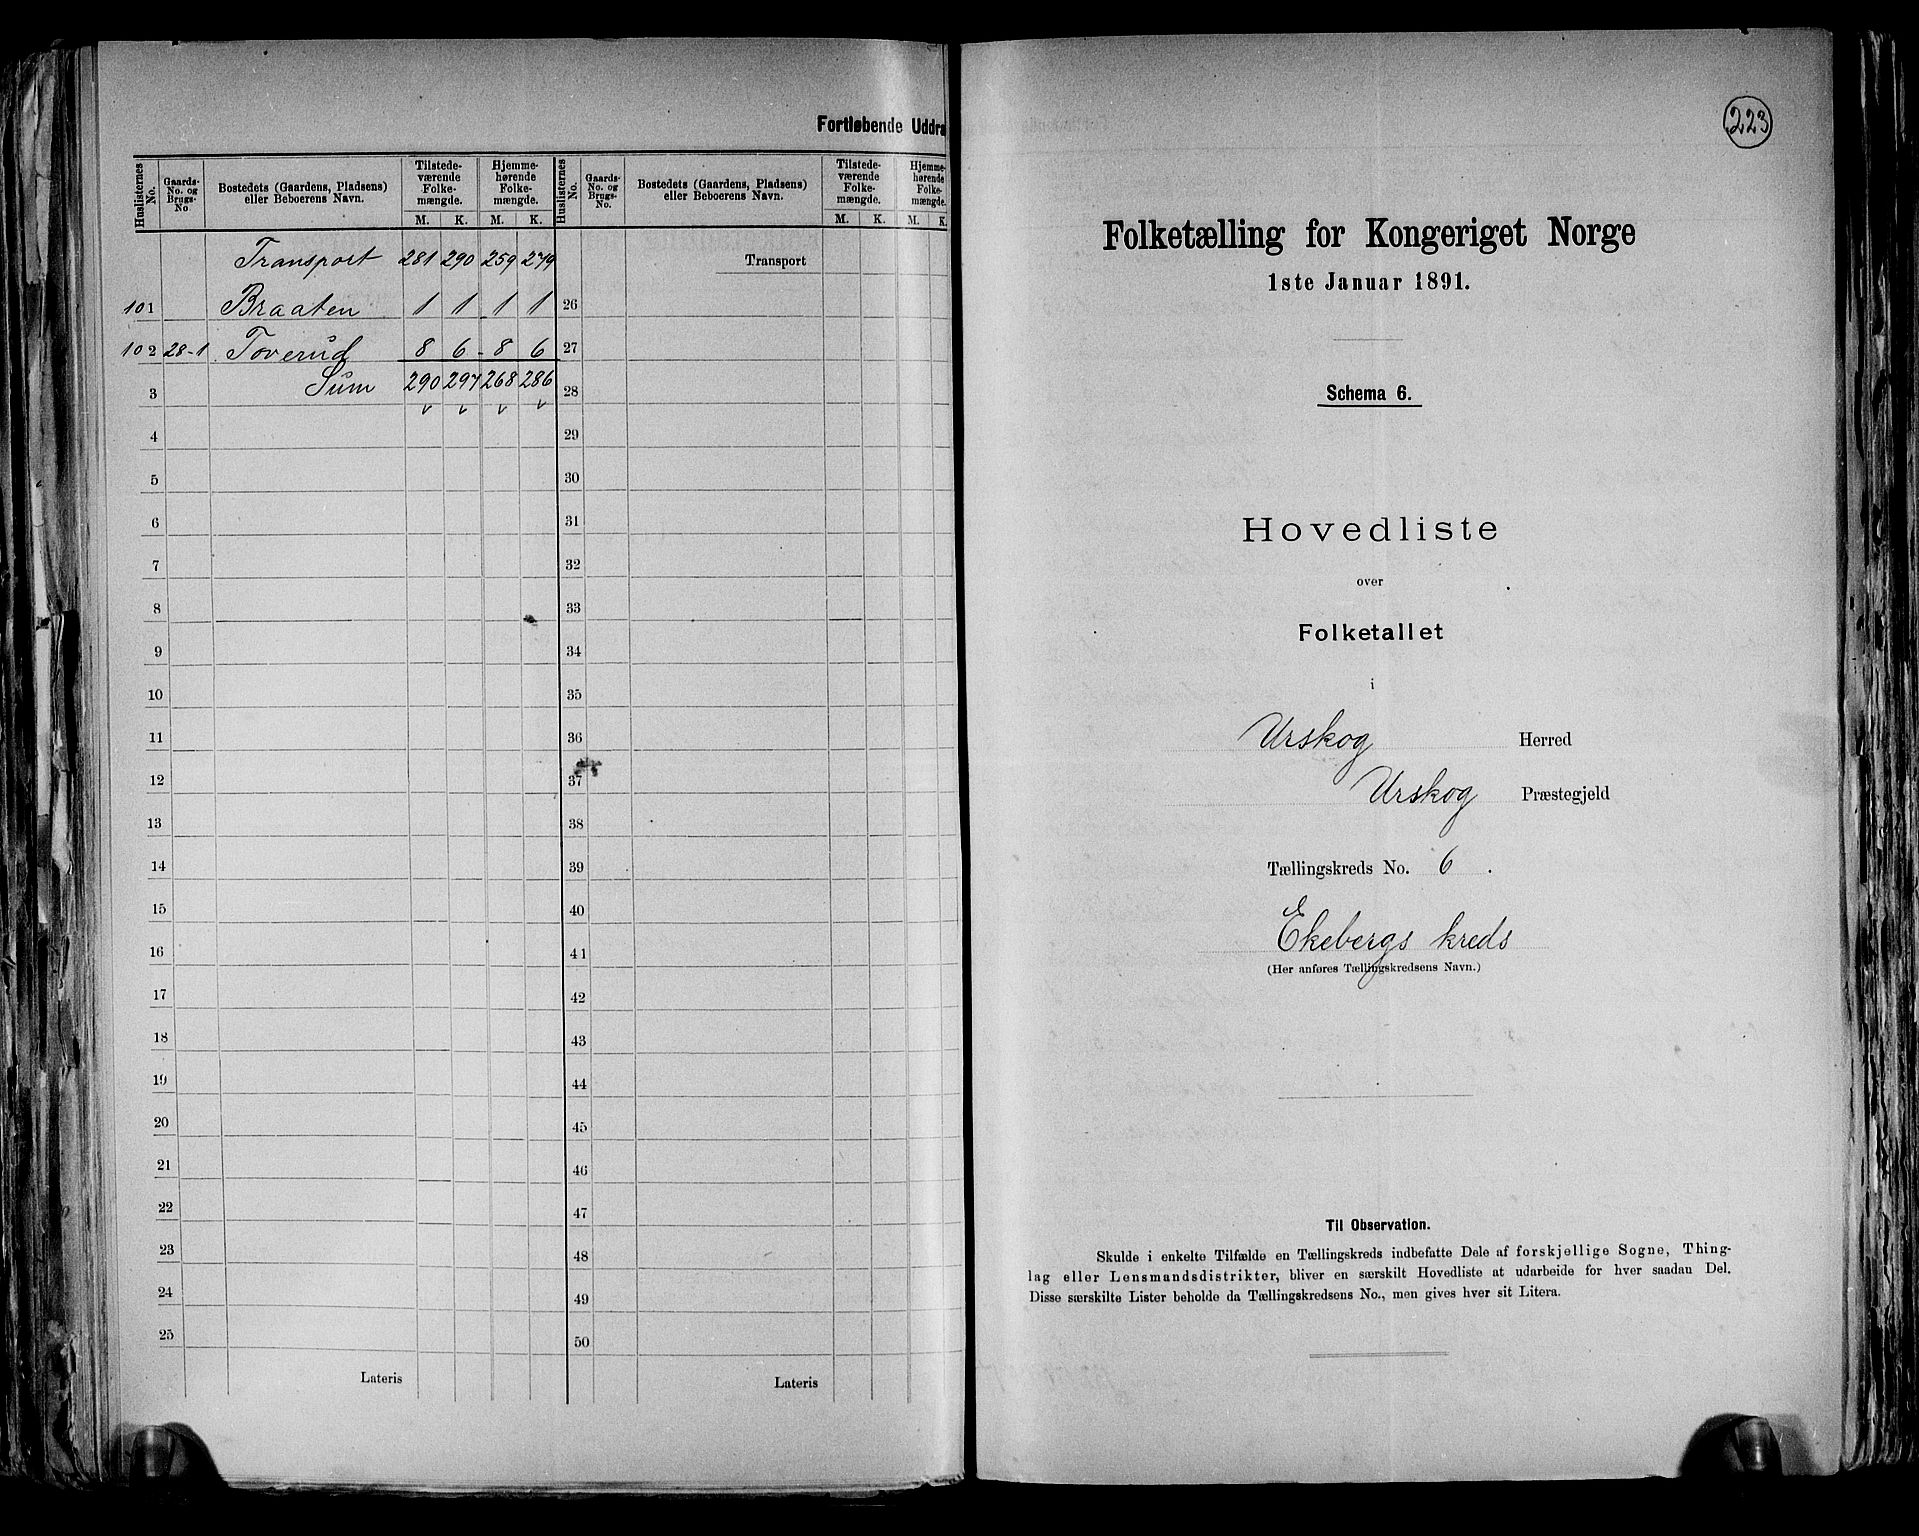 Fortløbende Uddra
Huslisternes No. Gaards-No. og Brugs-No Bostedets (Gaardens, Pladsens) eller Beboerens Navn. Tilstede-værende Folke-mængde. Hjemme-hørende Folke-mængde. Huslisternes No. Gaards-No. og Brugs-No. Bostedets (Gaardens, Pladsens) eller Beboerens Navn. Tilstede-værende Folke-mængde. Hjemme-hørende Folke-mængde.
M. K. M. K. M. K. M. K.
Transport 281 290 259 279 Transport
101 Braaten 1 1 1 1 26
102 28-1 Toverud 8 6 - 8 6 27
3 Sum 290 297 268 286 28
4 29
5 30
6 31
7 32
8 33
9 34
10 35
11 36
12 37
13 38
14 39
15 40
16 41
17 42
18 43
19 44
20 45
21 46
22 47
23 48
24 49
25 50
Lateris Lateris
223
Folketælling for Kongeriget Norge
1ste Januar 1891.
Schema 6.
Hovedliste
over
Folketallet
i
Urskog Herred
Urskog Præstegjeld
Tællingskreds No. 6.
Ekebergs kreds
(Her anføres Tællingskredsens Navn.)
Til Observation.
Skulde i enkelte Tilfælde en Tællingskreds indbefatte Dele af forskjellige Sogne, Thing-
lag eller Lensmandsdistrikter, bliver en særskilt Hovedliste at udarbeide for hver saadan Del.
Disse særskilte Lister beholde da Tællingskredsens No., men gives hver sit Litera.